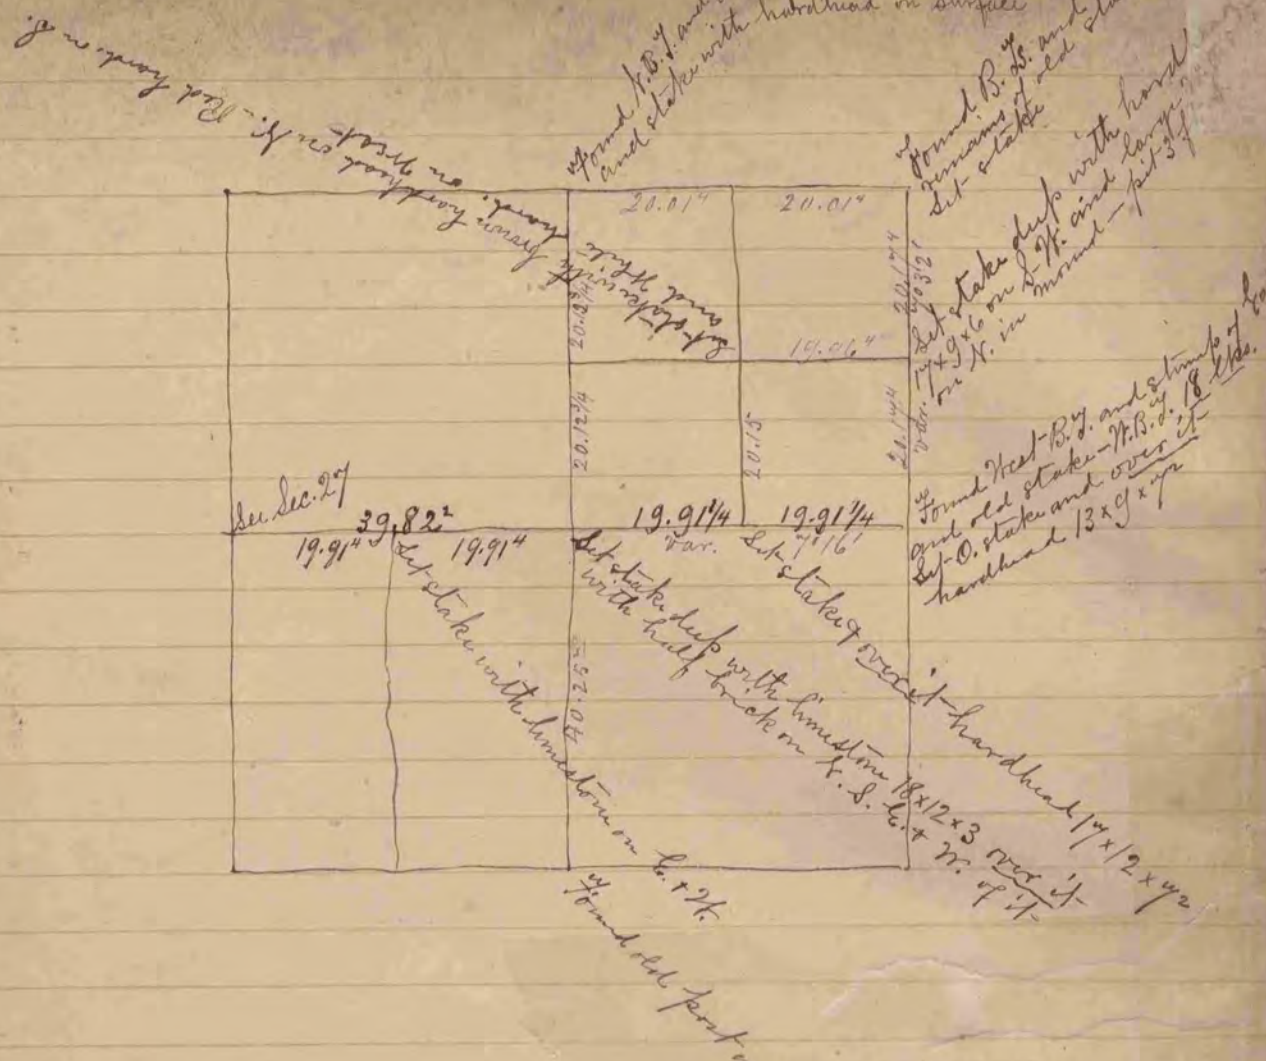 hard. on S.
brown hardhead on E. - Red
hard. on West
Set stake with
and White
Found N.B.T. and
and stake with hardhead on surface
Found B.Ts. and
remains of old
Set stake
Set stake deep with hard
7x9x6 on S-W. and large
on N. in mound - pit 3 f
Found West-B.T. and stump of
and old stake - W.B.T. 18 lks.
Set O. stake and over it
hardhead 13 x 9 x 7½
20.01⁴
20.01⁴
20.12¾
20.12¾
20.17⁴
Var. 7°32'
20.17⁴
19.96⁴
20.15
See Sec. 27
39.82²
19.91⁴
19.91⁴
19.91¼
19.91¼
Var.
7°16'
Set stake with limestone on E. + W.
Set stake deep with limestone 18x12x3 over it
with half brick on N. S. E. + W. of it
Set stake & over it hardhead 17 x 12 x 7½
40.25
Found old post